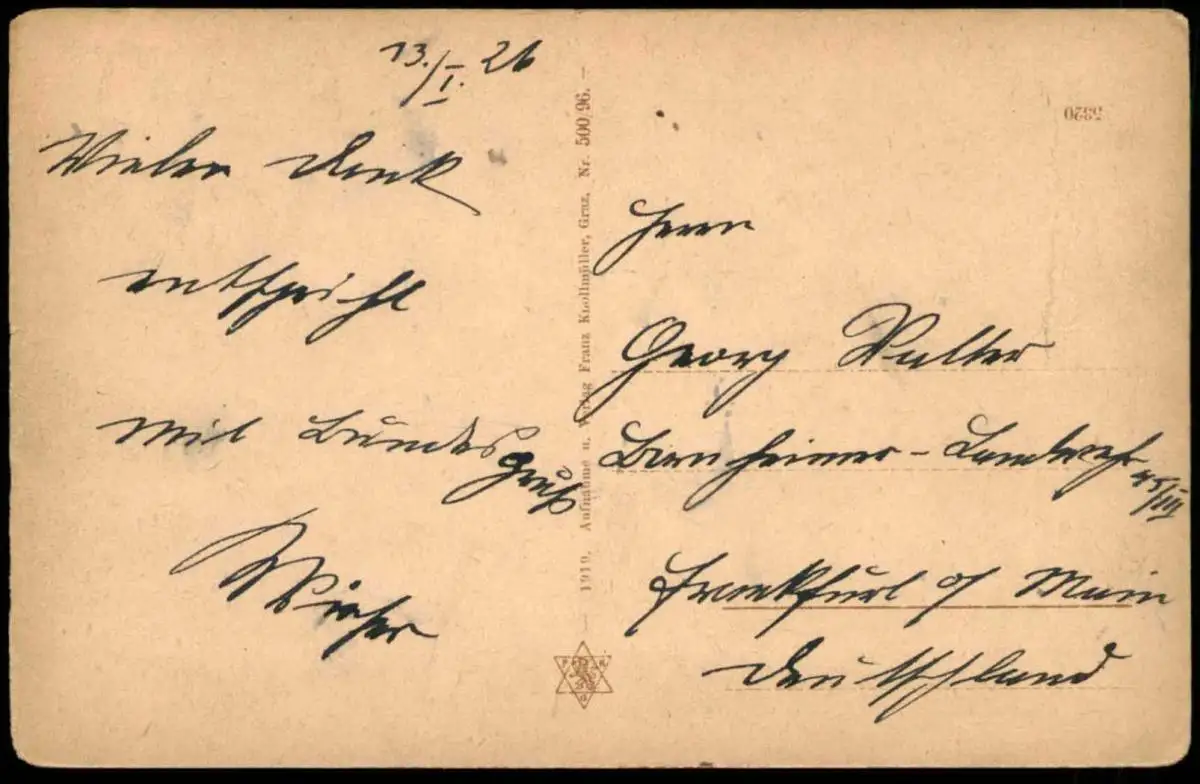 13./I. 26
Vielen Dank
entspricht
mit Bundes
gruß
Herrn
Georg Walter
Bornheimer-Landwehr
45/III
Frankfurt o/ Main
Deutschland
1919. Aufnahme u. Verlag Franz Knollmüller, Graz, Nr. 500/96.
5320